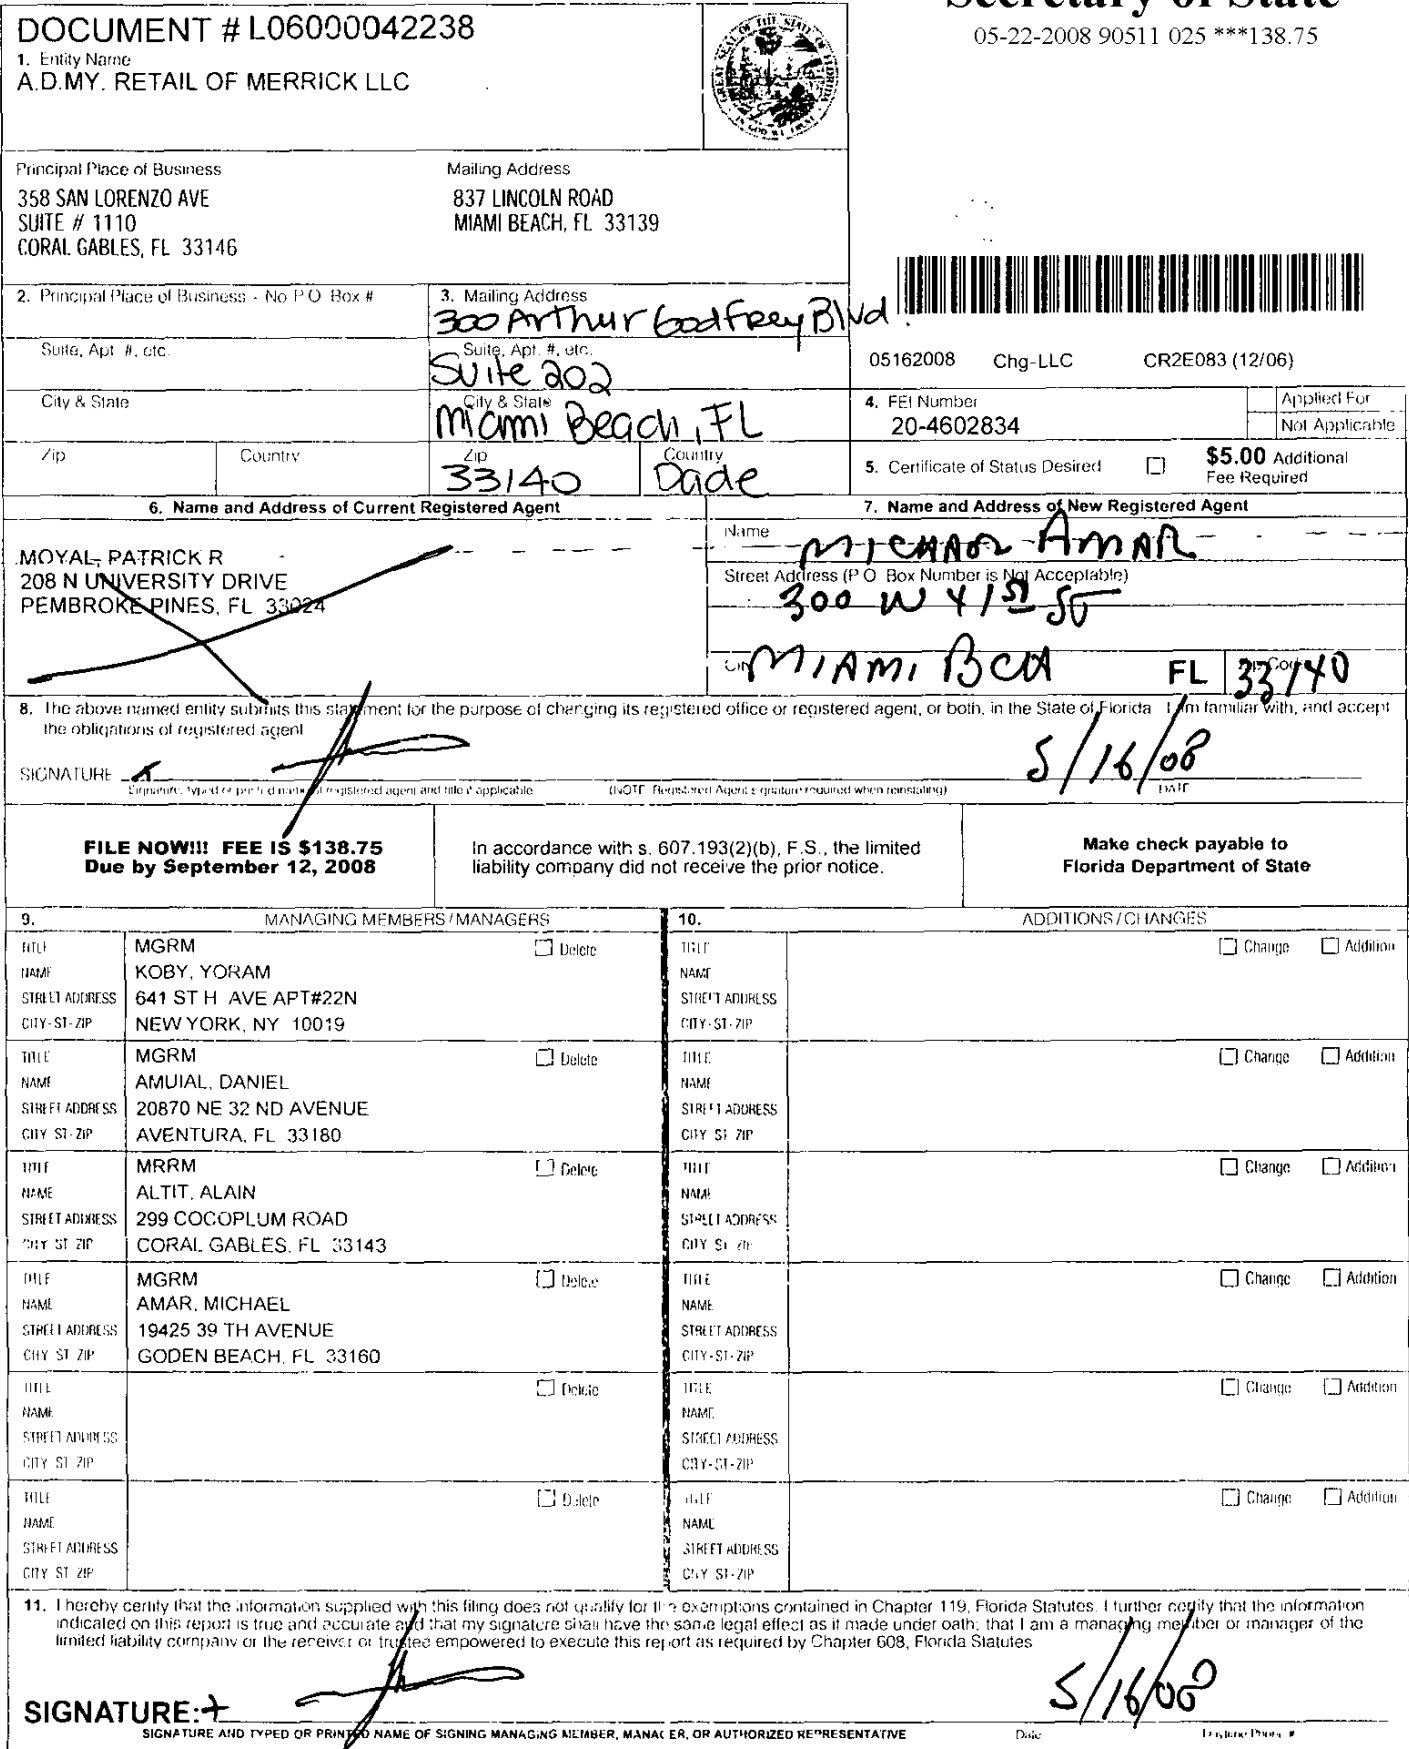 Secretary of State
05-22-2008 90511 025 ***138.75
DOCUMENT # L06000042238
1. Entity Name
A.D.MY. RETAIL OF MERRICK LLC
Principal Place of Business
358 SAN LORENZO AVE
SUITE # 1110
CORAL GABLES, FL 33146
Mailing Address
837 LINCOLN ROAD
MIAMI BEACH, FL 33139
2. Principal Place of Business - No P.O. Box #
Suite, Apt. #, etc.
City & State
Zip
Country
3. Mailing Address
300 Arthur Godfrey Blvd.
Suite, Apt. #, etc.
Suite 202
City & State
Miami Beach, FL
Zip
33140
Country
Dade
05162008 Chg-LLC CR2E083 (12/06)
4. FEI Number
20-4602834
Applied For
Not Applicable
5. Certificate of Status Desired
$5.00 Additional
Fee Required
6. Name and Address of Current Registered Agent
MOYAL, PATRICK R
208 N UNIVERSITY DRIVE
PEMBROKE PINES, FL 33024
7. Name and Address of New Registered Agent
Name
MICHAEL AMAR
Street Address (P.O. Box Number is Not Acceptable)
300 W 41st ST
City
MIAMI BCH FL
Zip Code
33140
8. The above named entity submits this statement for the purpose of changing its registered office or registered agent, or both, in the State of Florida. I am familiar with, and accept
the obligations of registered agent
SIGNATURE
5/16/08
Signature, typed or printed name of registered agent and title if applicable
(NOTE: Registered Agent signature required when reinstating)
DATE
FILE NOW!!! FEE IS $138.75
Due by September 12, 2008
In accordance with s. 607.193(2)(b), F.S., the limited
liability company did not receive the prior notice.
Make check payable to
Florida Department of State
9. MANAGING MEMBERS/MANAGERS
TITLE MGRM Delete
NAME KOBY, YORAM
STREET ADDRESS 641 ST H AVE APT#22N
CITY-ST-ZIP NEW YORK, NY 10019
TITLE MGRM Delete
NAME AMUIAL, DANIEL
STREET ADDRESS 20870 NE 32 ND AVENUE
CITY-ST-ZIP AVENTURA, FL 33180
TITLE MRRM Delete
NAME ALTIT, ALAIN
STREET ADDRESS 299 COCOPLUM ROAD
CITY-ST-ZIP CORAL GABLES, FL 33143
TITLE MGRM Delete
NAME AMAR, MICHAEL
STREET ADDRESS 19425 39 TH AVENUE
CITY-ST-ZIP GODEN BEACH, FL 33160
TITLE Delete
NAME
STREET ADDRESS
CITY-ST-ZIP
TITLE Delete
NAME
STREET ADDRESS
CITY-ST-ZIP
10. ADDITIONS/CHANGES
TITLE Change Addition
NAME
STREET ADDRESS
CITY-ST-ZIP
TITLE Change Addition
NAME
STREET ADDRESS
CITY-ST-ZIP
TITLE Change Addition
NAME
STREET ADDRESS
CITY-ST-ZIP
TITLE Change Addition
NAME
STREET ADDRESS
CITY-ST-ZIP
TITLE Change Addition
NAME
STREET ADDRESS
CITY-ST-ZIP
TITLE Change Addition
NAME
STREET ADDRESS
CITY-ST-ZIP
11. I hereby certify that the information supplied with this filing does not qualify for the exemptions contained in Chapter 119, Florida Statutes. I further certify that the information
indicated on this report is true and accurate and that my signature shall have the same legal effect as if made under oath; that I am a managing member or manager of the
limited liability company or the receiver or trustee empowered to execute this report as required by Chapter 608, Florida Statutes
SIGNATURE:
5/16/08
SIGNATURE AND TYPED OR PRINTED NAME OF SIGNING MANAGING MEMBER, MANAGER, OR AUTHORIZED REPRESENTATIVE
Date
Daytime Phone #